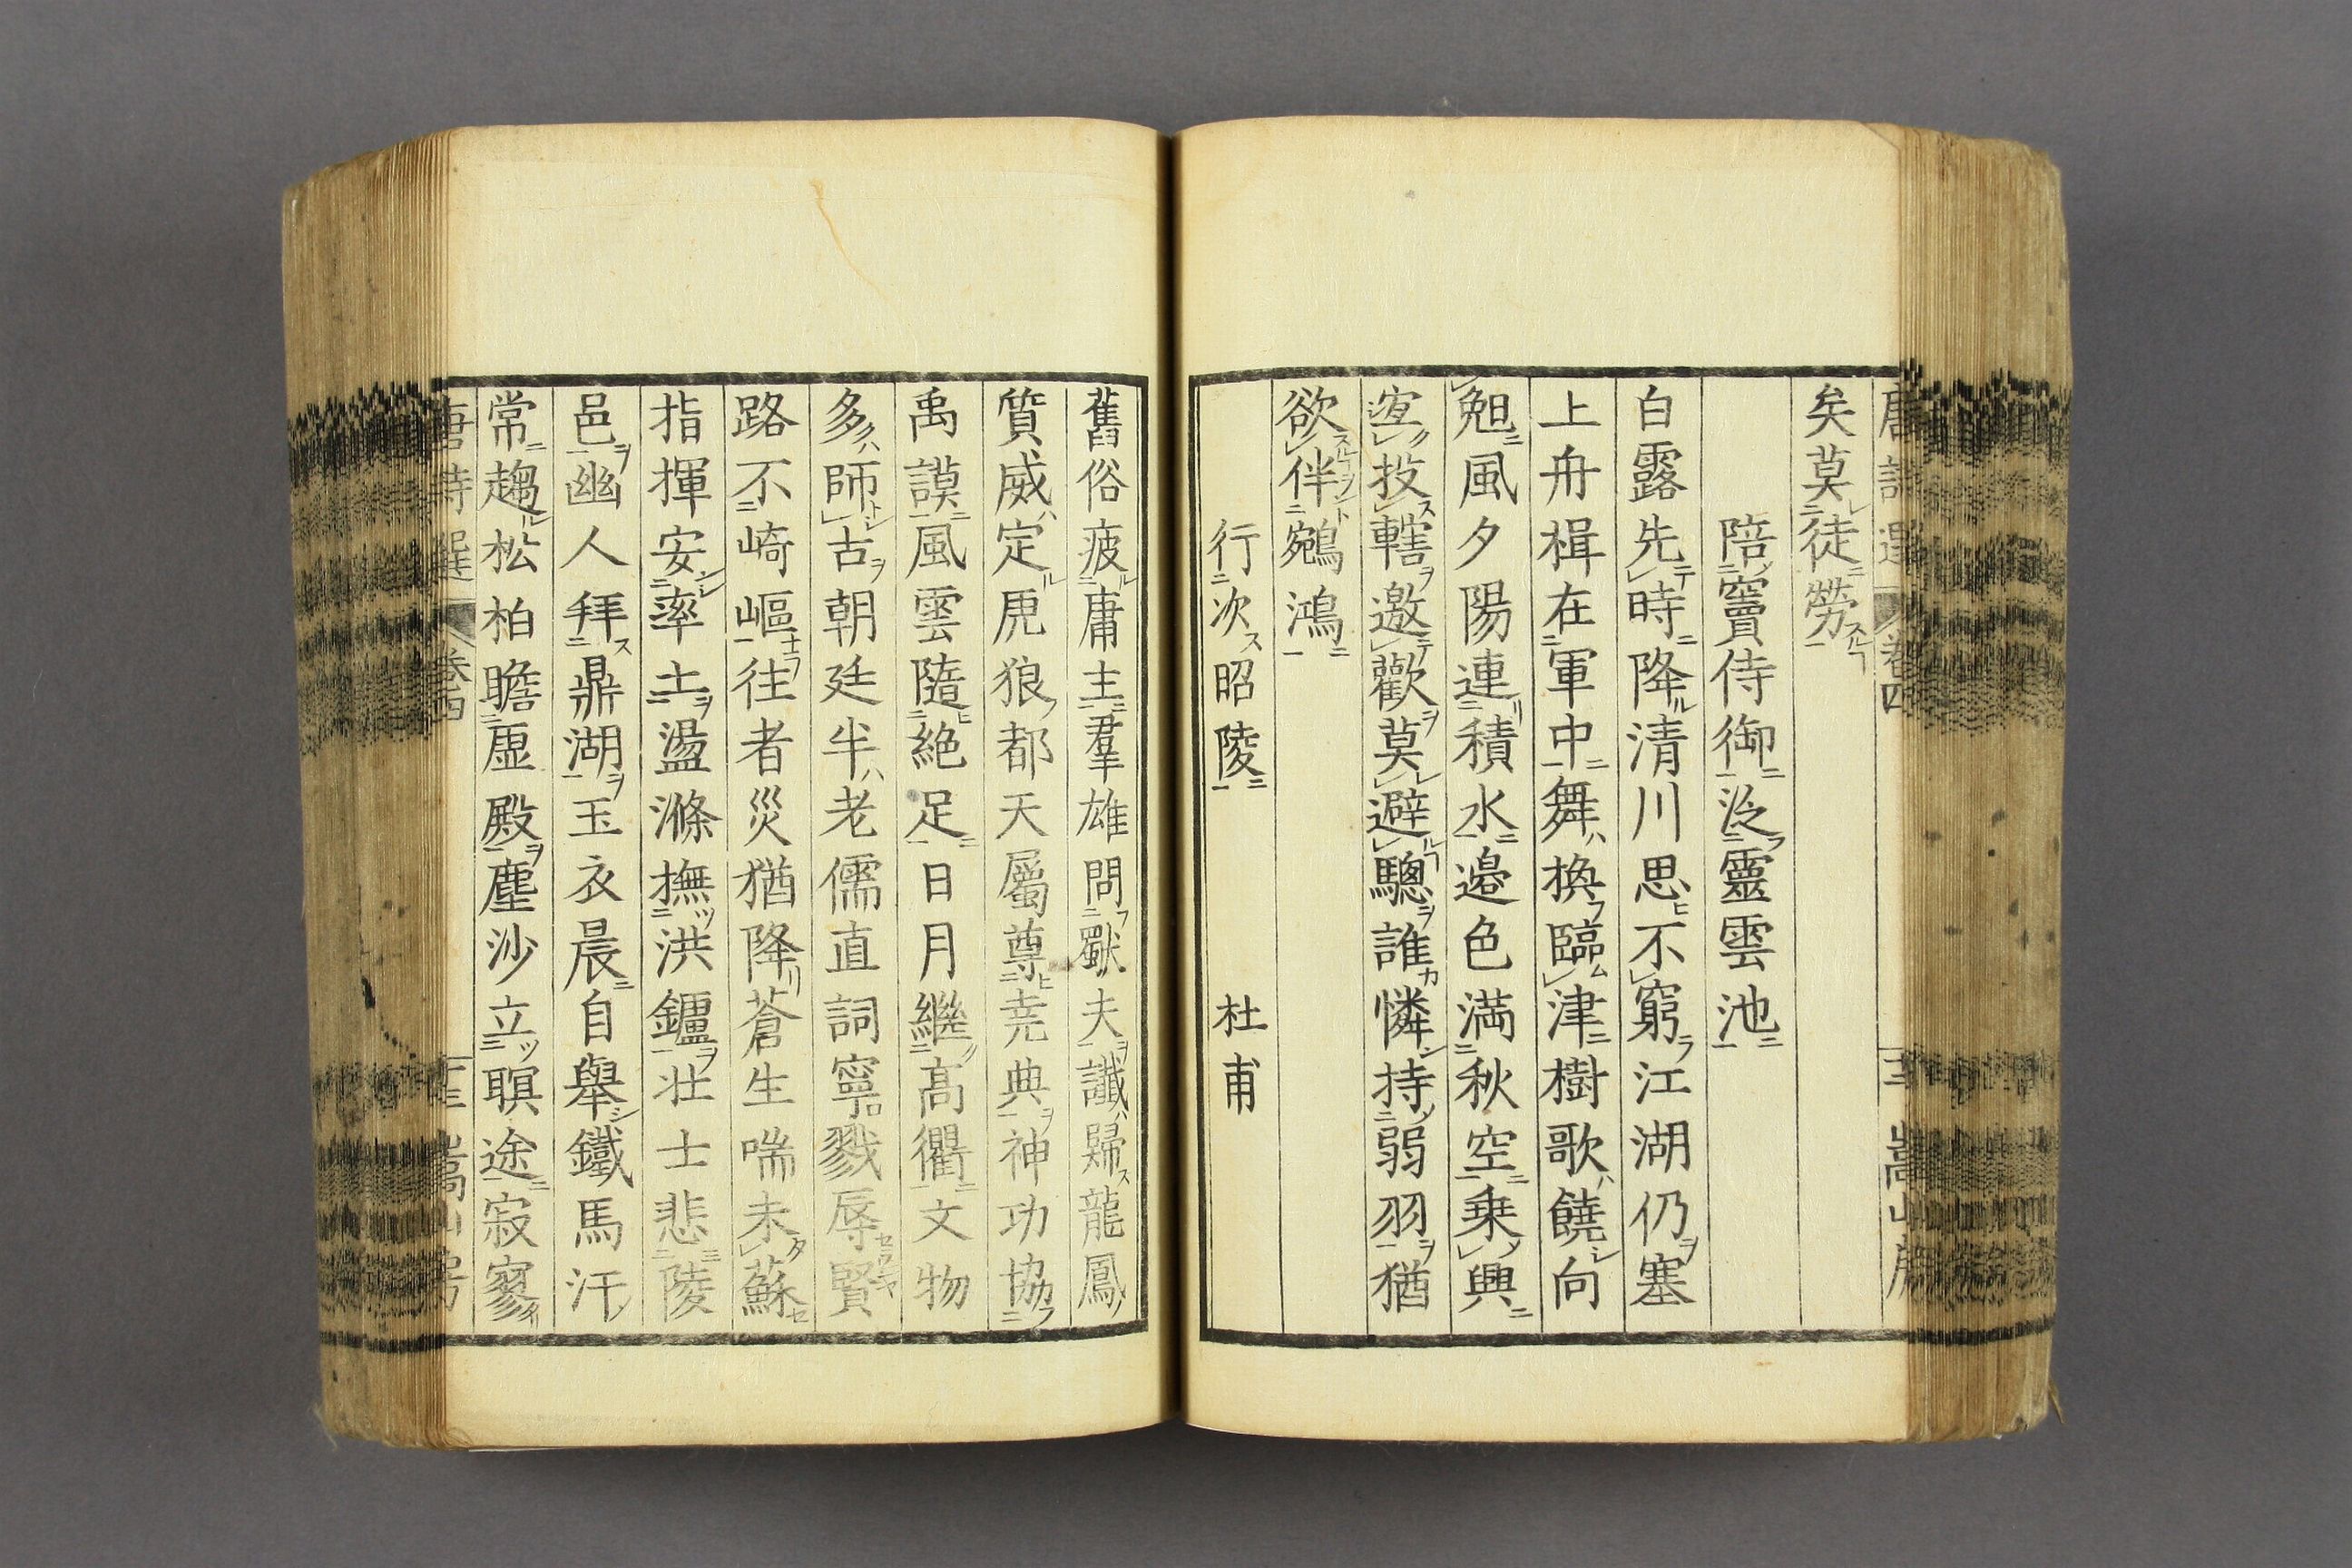 唐詩選 卷四 十二 嵩山房
矣莫徒勞
陪竇侍御泛靈雲池
白露先時降清川思不窮江湖仍塞
上舟楫在軍中舞換臨津樹歌饒向
晚風夕陽連積水邉色満秋空乗興
宐投轄邀歡莫避驄誰憐持弱羽猶
欲伴鵷鴻
行次昭陵 杜甫
舊俗疲庸主羣雄問獨夫讖歸龍鳳
質威定虎狼都天屬尊尭典神功協
禹謨風雲隨絶足日月繼髙衢文物
多師古朝廷半老儒直詞寧戮辱賢
路不崎嶇往者災猶降蒼生喘未蘇
指揮安率土盪滌撫洪鑪壮士悲陵
邑幽人拜鼎湖玉衣晨自舉鐵馬汗
常趨松柏瞻虚殿塵沙立暝途寂寥
唐詩選 卷四 十三 嵩山房